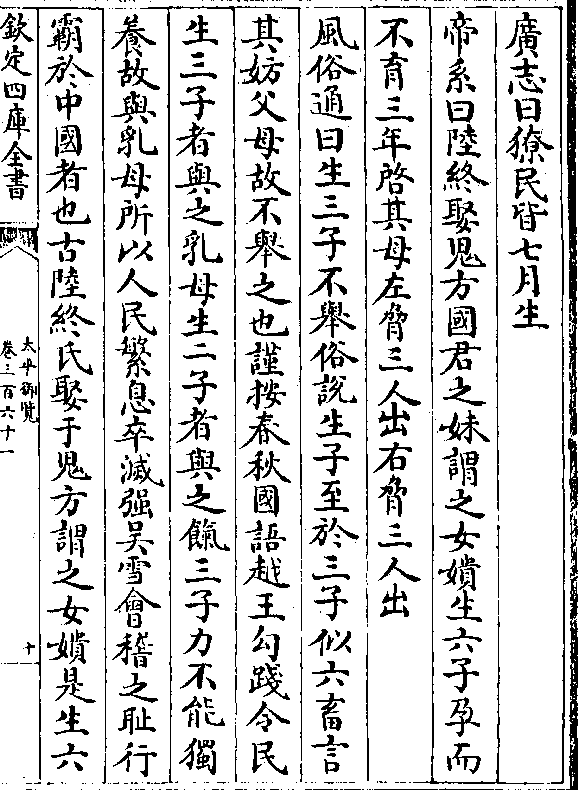 廣志曰獠民皆七月生
帝系曰陸終娶鬼方國君之妹謂之女嬇生六子孕而
不育三年啓其母左脅三人出右脅三人出
風俗通曰生三子不舉俗說生子至於三子似六畜言
其妨父母故不舉之也謹按春秋國語越王勾踐令民
生三子者與之乳母生二子者與之餼三子力不能獨
養故與乳母所以人民繁息卒滅强吳雪會稽之耻行
霸於中國者也古陸終氏娶于鬼方謂之女嬇是生六
欽定四庫全書
太平御覽
卷三百六十一
十